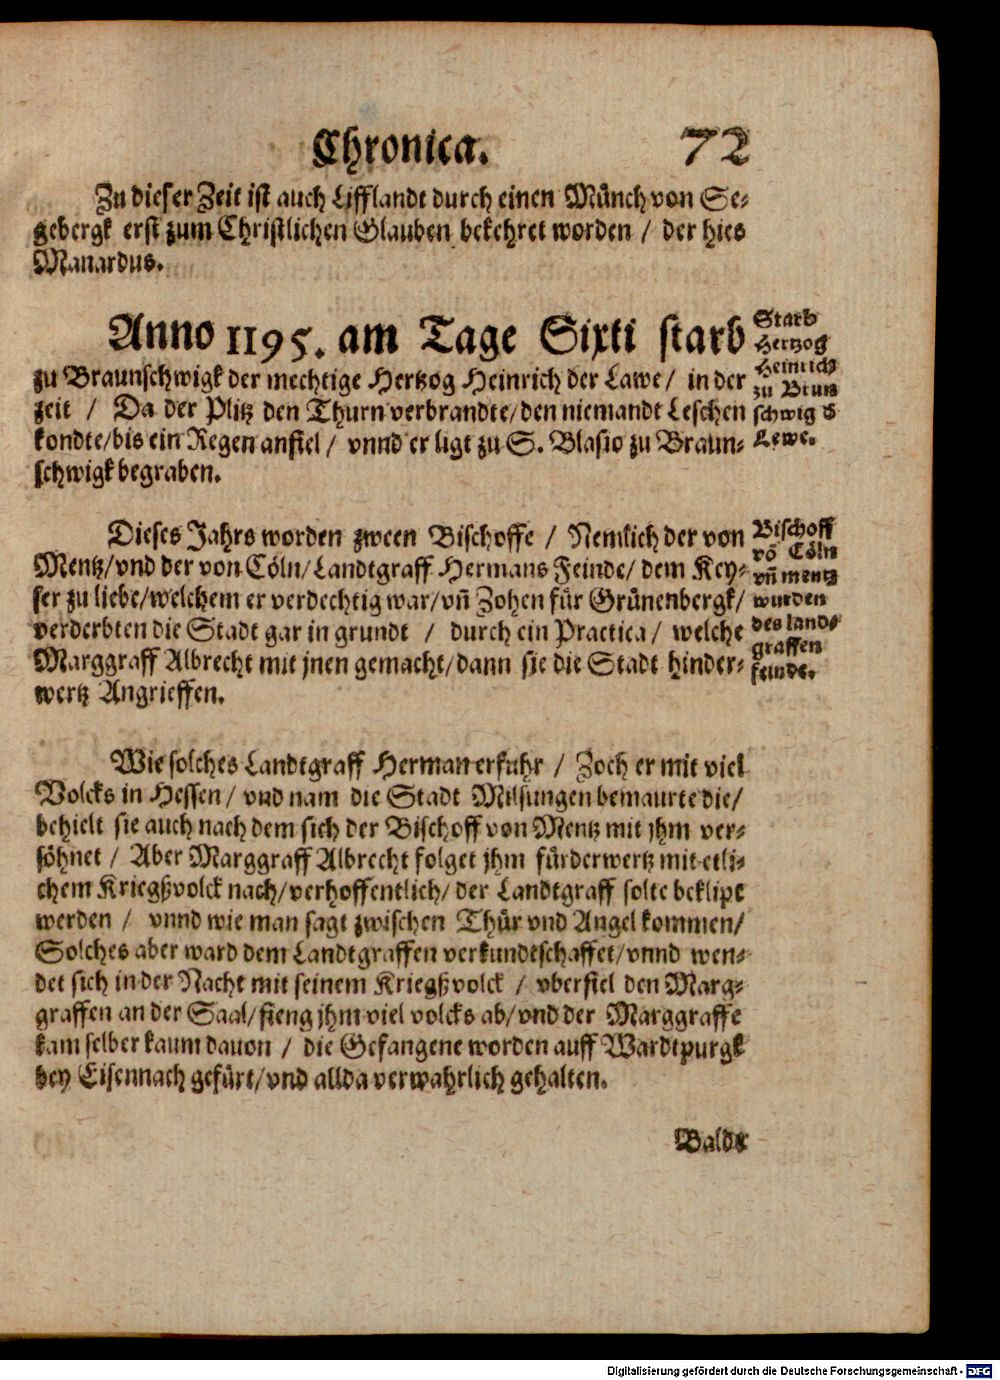 Chronica. 72
Zu dieser Zeit ist auch Lifflandt durch einen Můnch von Se-
gebergk erst zum Christlichen Glauben bekehret worden / der hies
Manardus.
Anno 1195. am Tage Sixti starb
zu Braunschwigk der mechtige Hertzog Heinrich der Lawe / in der
zeit / Da der Plitz den Thurn verbrandte / den niemandt Leschen
kondte / bis ein Regen anfiel / vnnd er ligt zu S. Blasio zu Braun-
schwigk begraben.
Starb
Hertzog
Heinrich
zu Brun
schwig d
Lewe.
Dieses Jahrs worden zween Bischoffe / Nemlich der von
Mentz / vnd der von Cöln / Landtgraff Hermans Feinde / dem Key-
ser zu liebe / welchem er verdechtig war / vñ Zohen für Grůnenbergk /
verderbten die Stadt gar in grundt / durch ein Practica / welche
Marggraff Albrecht mit jnen gemacht / dann sie die Stadt hinder-
wertz Angrieffen.
Bischoff
võ Cöln
vñ mentz
wurden
des land-
graffen
feinde.
Wie solches Landtgraff Herman erfuhr / Zoch er mit viel
Volcks in Hessen / vnd nam die Stadt Milsungen bemaurte die /
behielt sie auch nach dem sich der Bischoff von Mentz mit jhm ver-
söhnet / Aber Marggraff Albrecht folget jhm fürderwertz mit etli-
chem Kriegßvolck nach / verhoffentlich / der Landtgraff solte beklipt
werden / vnnd wie man sagt zwischen Thůr vnd Angel kommen /
Solches aber ward dem Landtgraffen verkundtschaffet / vnnd wen-
det sich in der Nacht mit seinem Kriegßvolck / vberfiel den Marg-
graffen an der Saal / fieng jhm viel volcks ab / vnd der Marggraffe
kam selber kaum dauon / die Gefangene worden auff Wardtpurgk
bey Eisennach gefürt / vnd allda verwahrlich gehalten.
Baldt
Digitalisierung gefördert durch die Deutsche Forschungsgemeinschaft - DFG